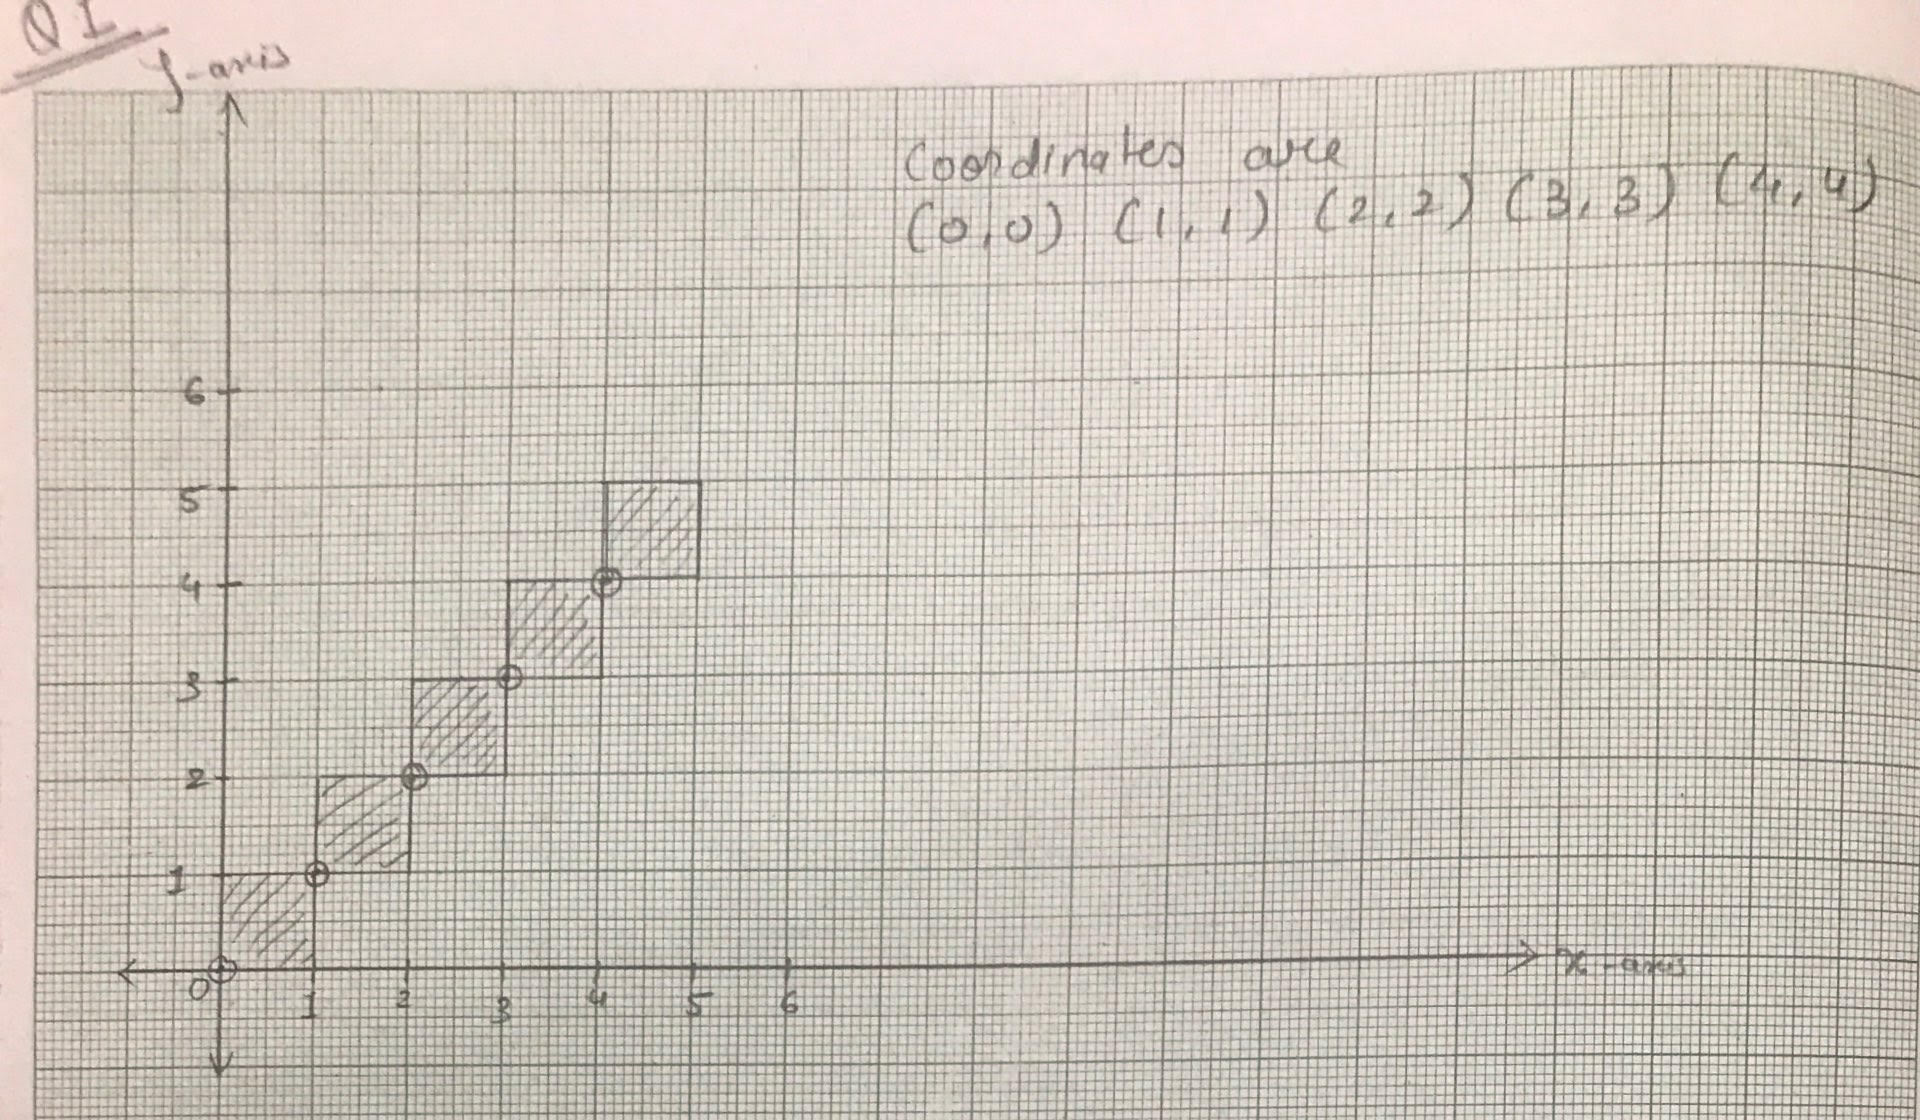 Q1
y-axis
Coordinates are
(0,0) (1,1) (2,2) (3,3) (4,4)
6
5
4
3
2
1
0 1 2 3 4 5 6
x-axis